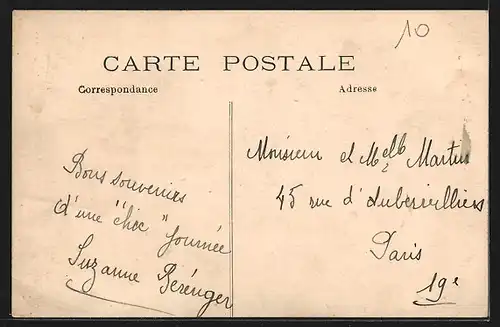 10
CARTE POSTALE
Correspondance
Adresse
Bons souvenirs
d'une "chic" journée
Suzanne Bérenger
Monsieur et Melle Martin
45 rue d'Aubervilliers
Paris
19e